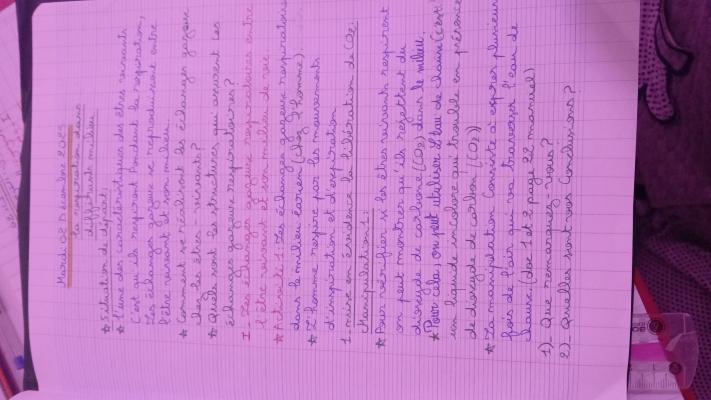 Mardi 02 Décembre 2025
La respiration dans
différents milieu
* Situation de départ:
* L'une des caractéristiques des êtres vivants
C'est qu'ils respirent Pendant la respiration,
Les échanges gazeux se reproduisent entre
l'être vivant et son milieu
* Comment se réalisent les échanges gazeux
chez les êtres-vivants?
* Quels sont les structures qui assurent les
échanges gazeux respiratoires?
I- Les échanges gazeux respiratoires entre
l'être vivant et son milieu de vie.
* Activité 1: Les échanges gazeux respiratoires
dans le milieu aérien (chez l'homme).
* L'homme respire par les mouvements
d'inspiration et d'expiration
1. mise en évidence la libération de CO2:
Manipulation 1:
* Pour vérifier si les êtres vivants respirent
on peut montrer qu'ils rejettent du
dioxyde de carbone (CO2) dans le milieu,
* Pour cela, on peut utiliser l'eau de chaux (c'est
un liquide incolore qui trouble en présence
de dioxyde de carbone (CO2))
* La manipulation Consiste à expirer plusieurs
fois de l'air qui va traverser l'eau de
chaux. (doc 1 et 2 page 22 manuel)
1) Que remarquez vous?
2) Quelles sont vos Conclusions?